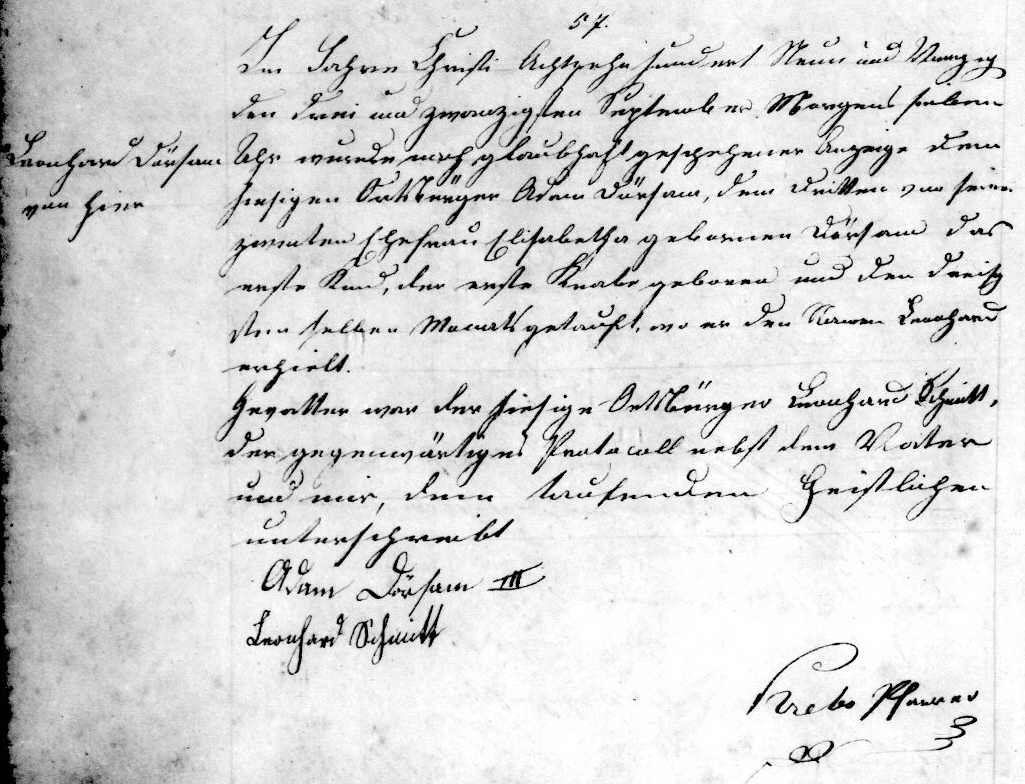 57.
Im Jahre Christi Achtzehnhundert Neun und Vierzig
den drei und zwanzigsten September Morgens sieben
Leonhard Dörsam
von hier
Uhr wurde nach glaubhaft geschehener Anzeige dem
hiesigen Ortsbürger Adam Dörsam, dem dritten von seiner
zweiten Ehefrau Elisabetha gebornen Dörsam das
erste Kind, der erste Knabe geboren und den dreißig
sten selben Monats getauft, wo er den Namen Leonhard
erhielt.
Gevatter war der hiesige Ortsbürger Leonhard Schmitt,
der gegenwärtiges Protocoll nebst dem Vater
und mir, dem taufenden Geistlichen
unterschreibt
Adam Dörsam III
Leonhard Schmitt
Pfarrer